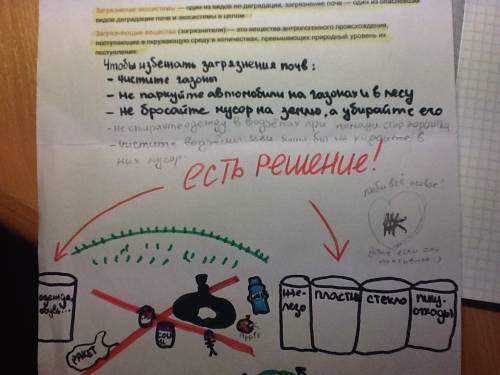 Загрязнение экосистемы — один из видов её деградации, загрязнение почв — один из опаснейших
видов деградации почв и экосистемы в целом.
Загрязняющие вещества (загрязнители) — это вещества антропогенного происхождения,
поступающие в окружающую среду в количествах, превышающих природный уровень их
поступления.
Чтобы избежать загрязнения почв:
- чистите газоны
- не паркуйте автомобили на газонах и в лесу
- не бросайте мусор на землю, а убирайте его
- не стирайте одежду в водоёмах при помощи стир порошка
- чистите водоёмы или хотя бы не кидайте в
них мусор
ЕСТЬ РЕШЕНИЕ!
люби всё живое!
ЖК
даже если оно
:)
одежда,
обувь...
же-
лезо
пластик
стекло
пищ.
отходы
Apple
ПАКЕТ